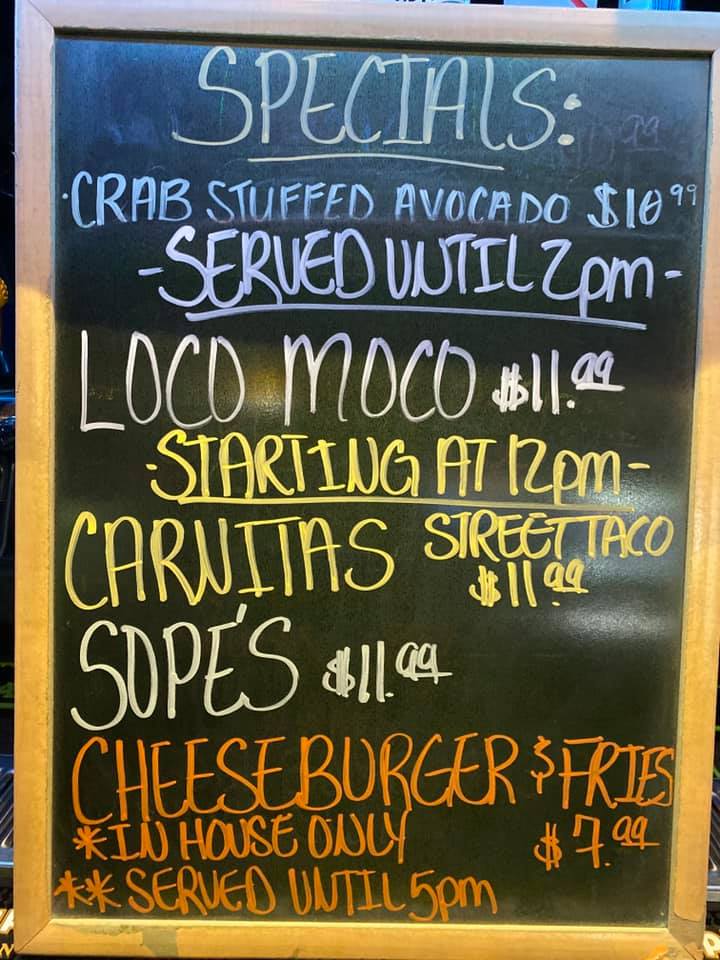 SPECIALS:
CRAB STUFFED AVOCADO $10.99
-SERVED UNTIL 2pm-
LOCO MOCO $11.99
-STARTING AT 12pm-
CARNITAS STREET TACO
$11.99
SOPE'S $11.99
CHEESEBURGER & FRIES
*IN HOUSE ONLY $7.99
**SERVED UNTIL 5pm